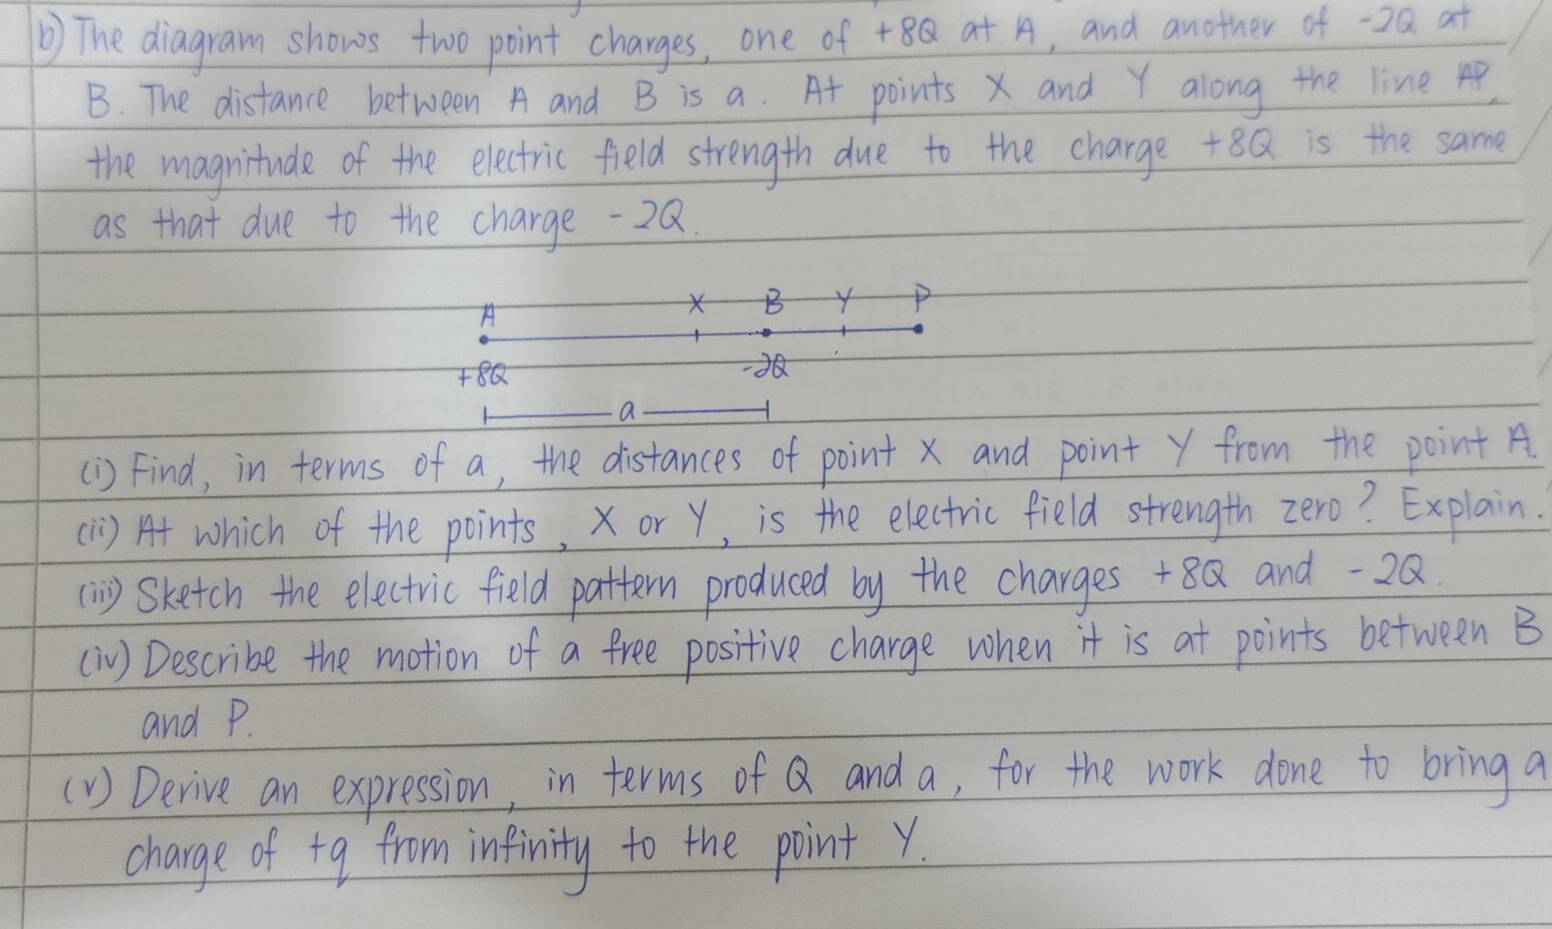 b) The diagram shows two point charges, one of +8Q at A, and another of -2Q at
B. The distance between A and B is a. At points X and Y along the line AP,
the magnitude of the electric field strength due to the charge +8Q is the same
as that due to the charge -2Q.
A X B Y P
+8Q -2Q
a
(i) Find, in terms of a, the distances of point X and point Y from the point A.
(ii) At which of the points, X or Y, is the electric field strength zero? Explain.
(iii) Sketch the electric field pattern produced by the charges +8Q and -2Q.
(iv) Describe the motion of a free positive charge when it is at points between B
and P.
(v) Derive an expression, in terms of Q and a, for the work done to bring a
charge of +q from infinity to the point Y.